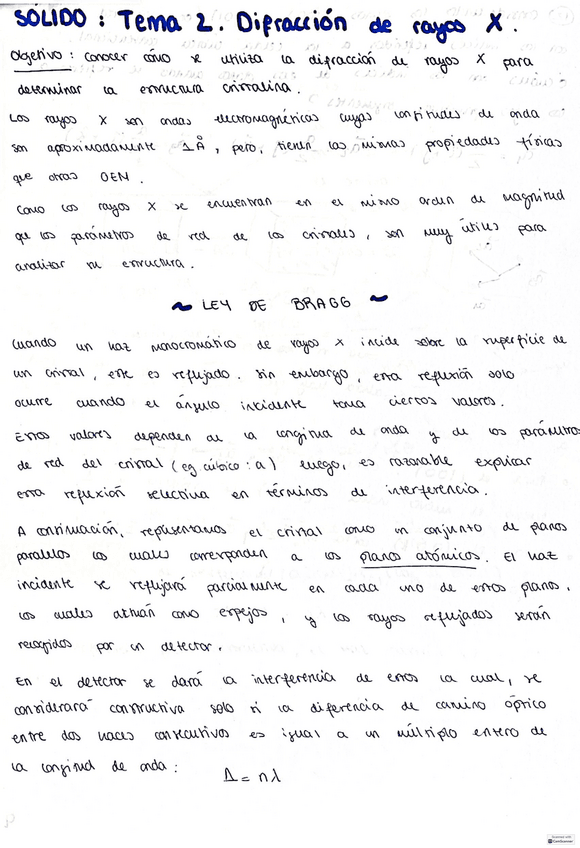 SÓLIDO: Tema 2. Difracción de rayos X.
Objetivo: conocer cómo se utiliza la difracción de rayos X para
determinar la estructura cristalina.
Los rayos X son ondas electromagnéticas cuyas longitudes de onda
son aproximadamente 1Å, pero, tienen las mismas propiedades físicas
que otras OEM.
Como los rayos X se encuentran en el mismo orden de magnitud
que los parámetros de red de los cristales, son muy útiles para
analizar su estructura.
~ LEY DE BRAGG ~
Cuando un haz monocromático de rayos X incide sobre la superficie de
un cristal, este es reflejado. Sin embargo, esta reflexión solo
ocurre cuando el ángulo incidente toma ciertos valores.
Estos valores dependen de la longitud de onda y de los parámetros
de red del cristal (eg cúbico: a) luego, es razonable explicar
esta reflexión selectiva en términos de interferencia.
A continuación, representamos el cristal como un conjunto de planos
paralelos los cuales corresponden a los planos atómicos. El haz
incidente se reflejará parcialmente en cada uno de estos planos,
los cuales actúan como espejos, y los rayos reflejados serán
recogidos por un detector.
En el detector se dará la interferencia de estos la cual, se
considerará constructiva solo si la diferencia de camino óptico
entre dos haces consecutivos es igual a un múltiplo entero de
la longitud de onda: Δ = nλ
CamScanner